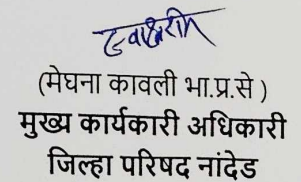 स्वाक्षरीत
(मेघना कावली भा.प्र.से )
मुख्य कार्यकारी अधिकारी
जिल्हा परिषद नांदेड